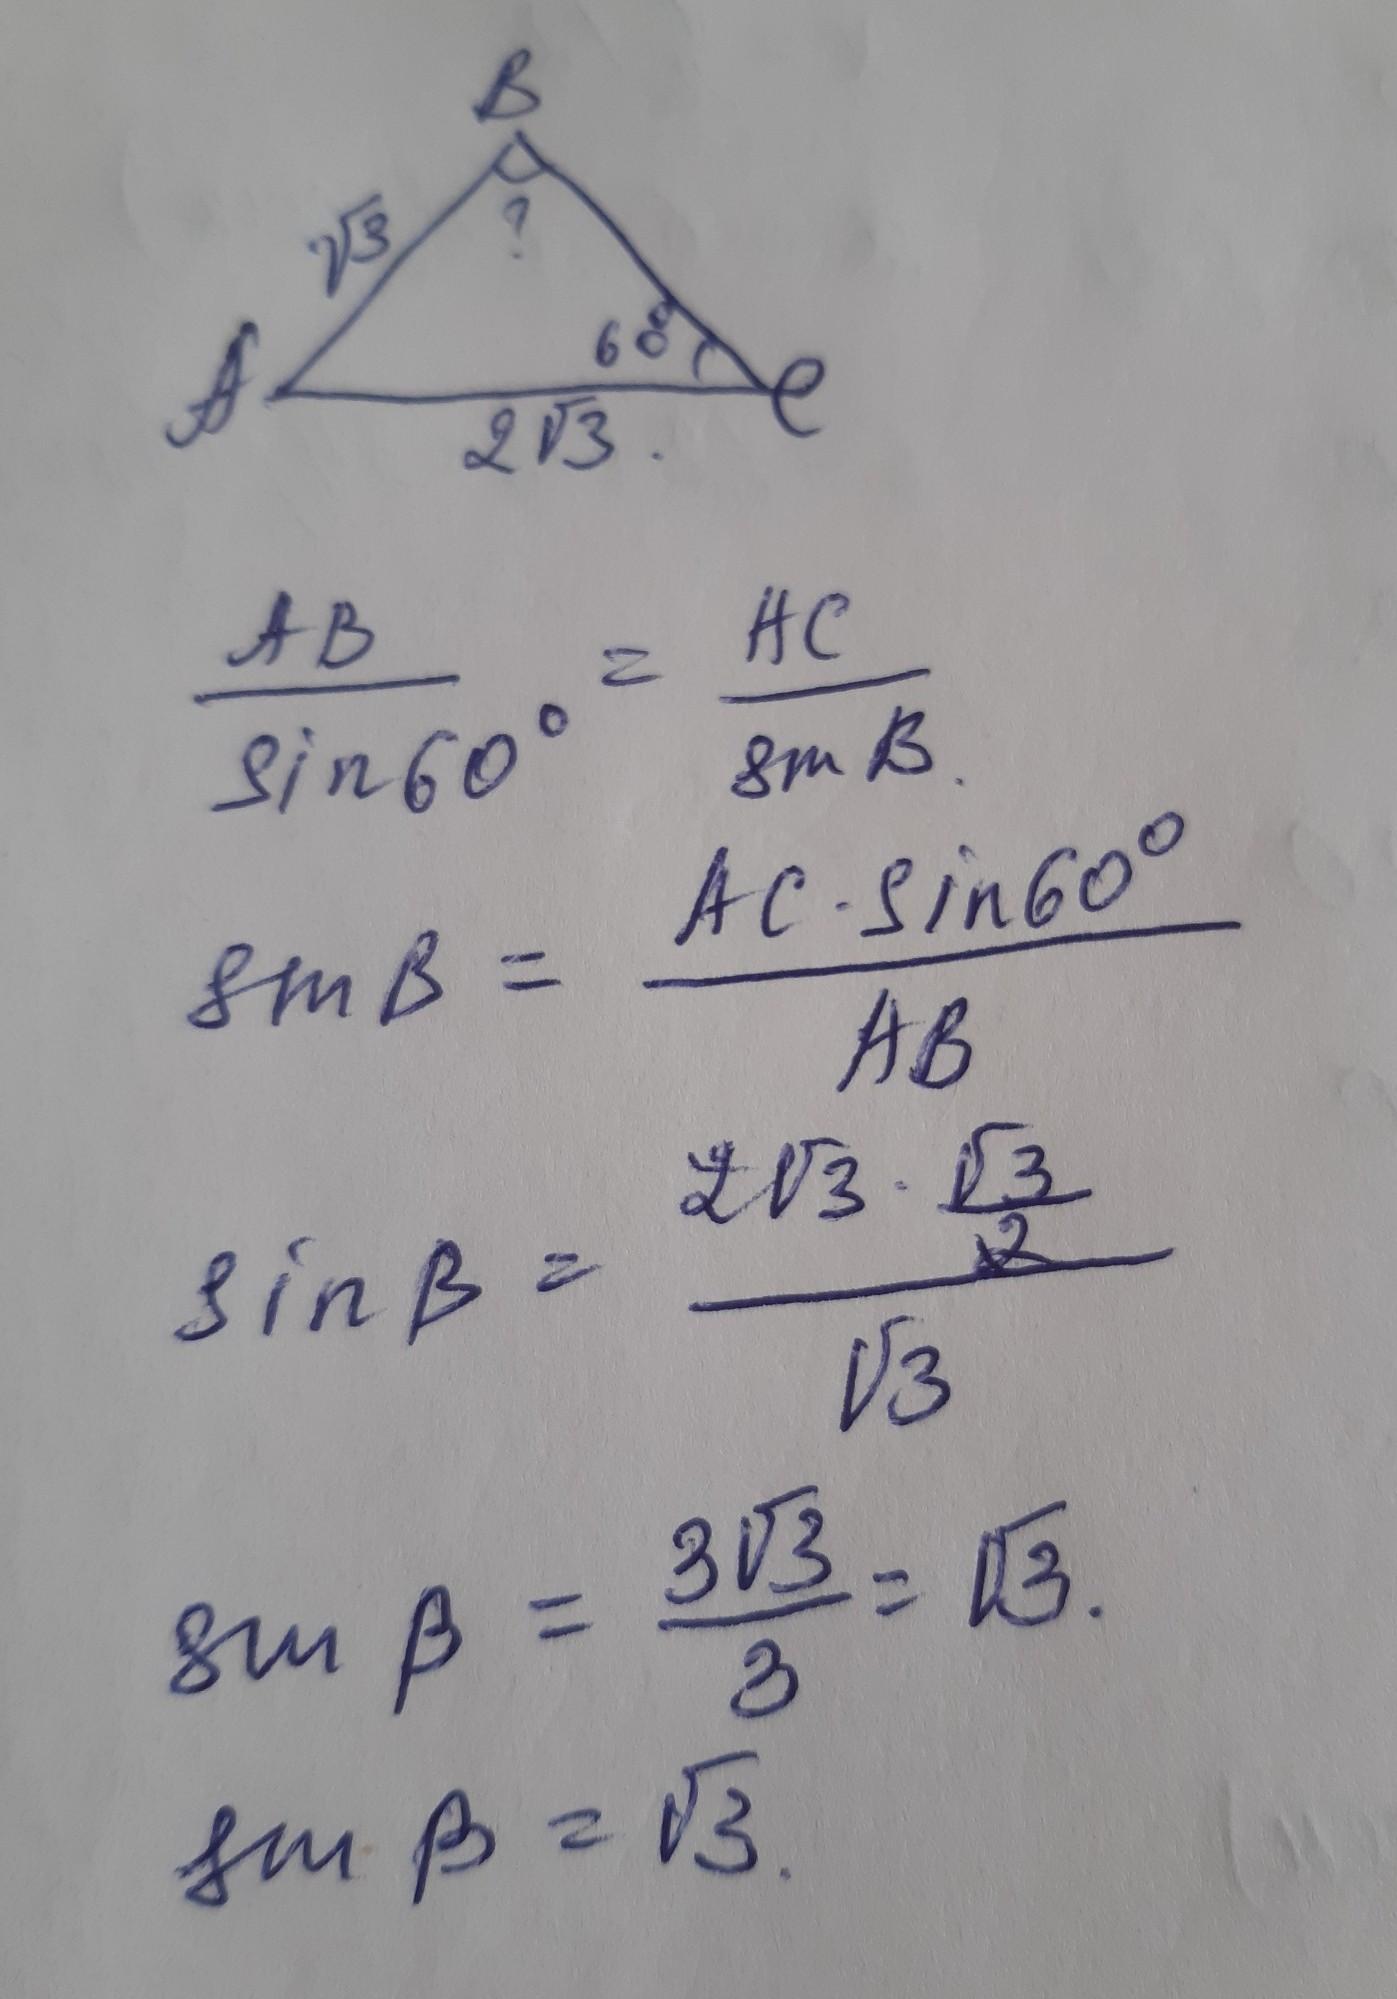 B
√3
?
60°
A
C
2√3.
AB/sin60° = AC/sin B.
sin B = AC·sin60°/AB
sin B = 2√3·√3/2/√3
sin B = 3√3/3 = √3.
sin B = √3.